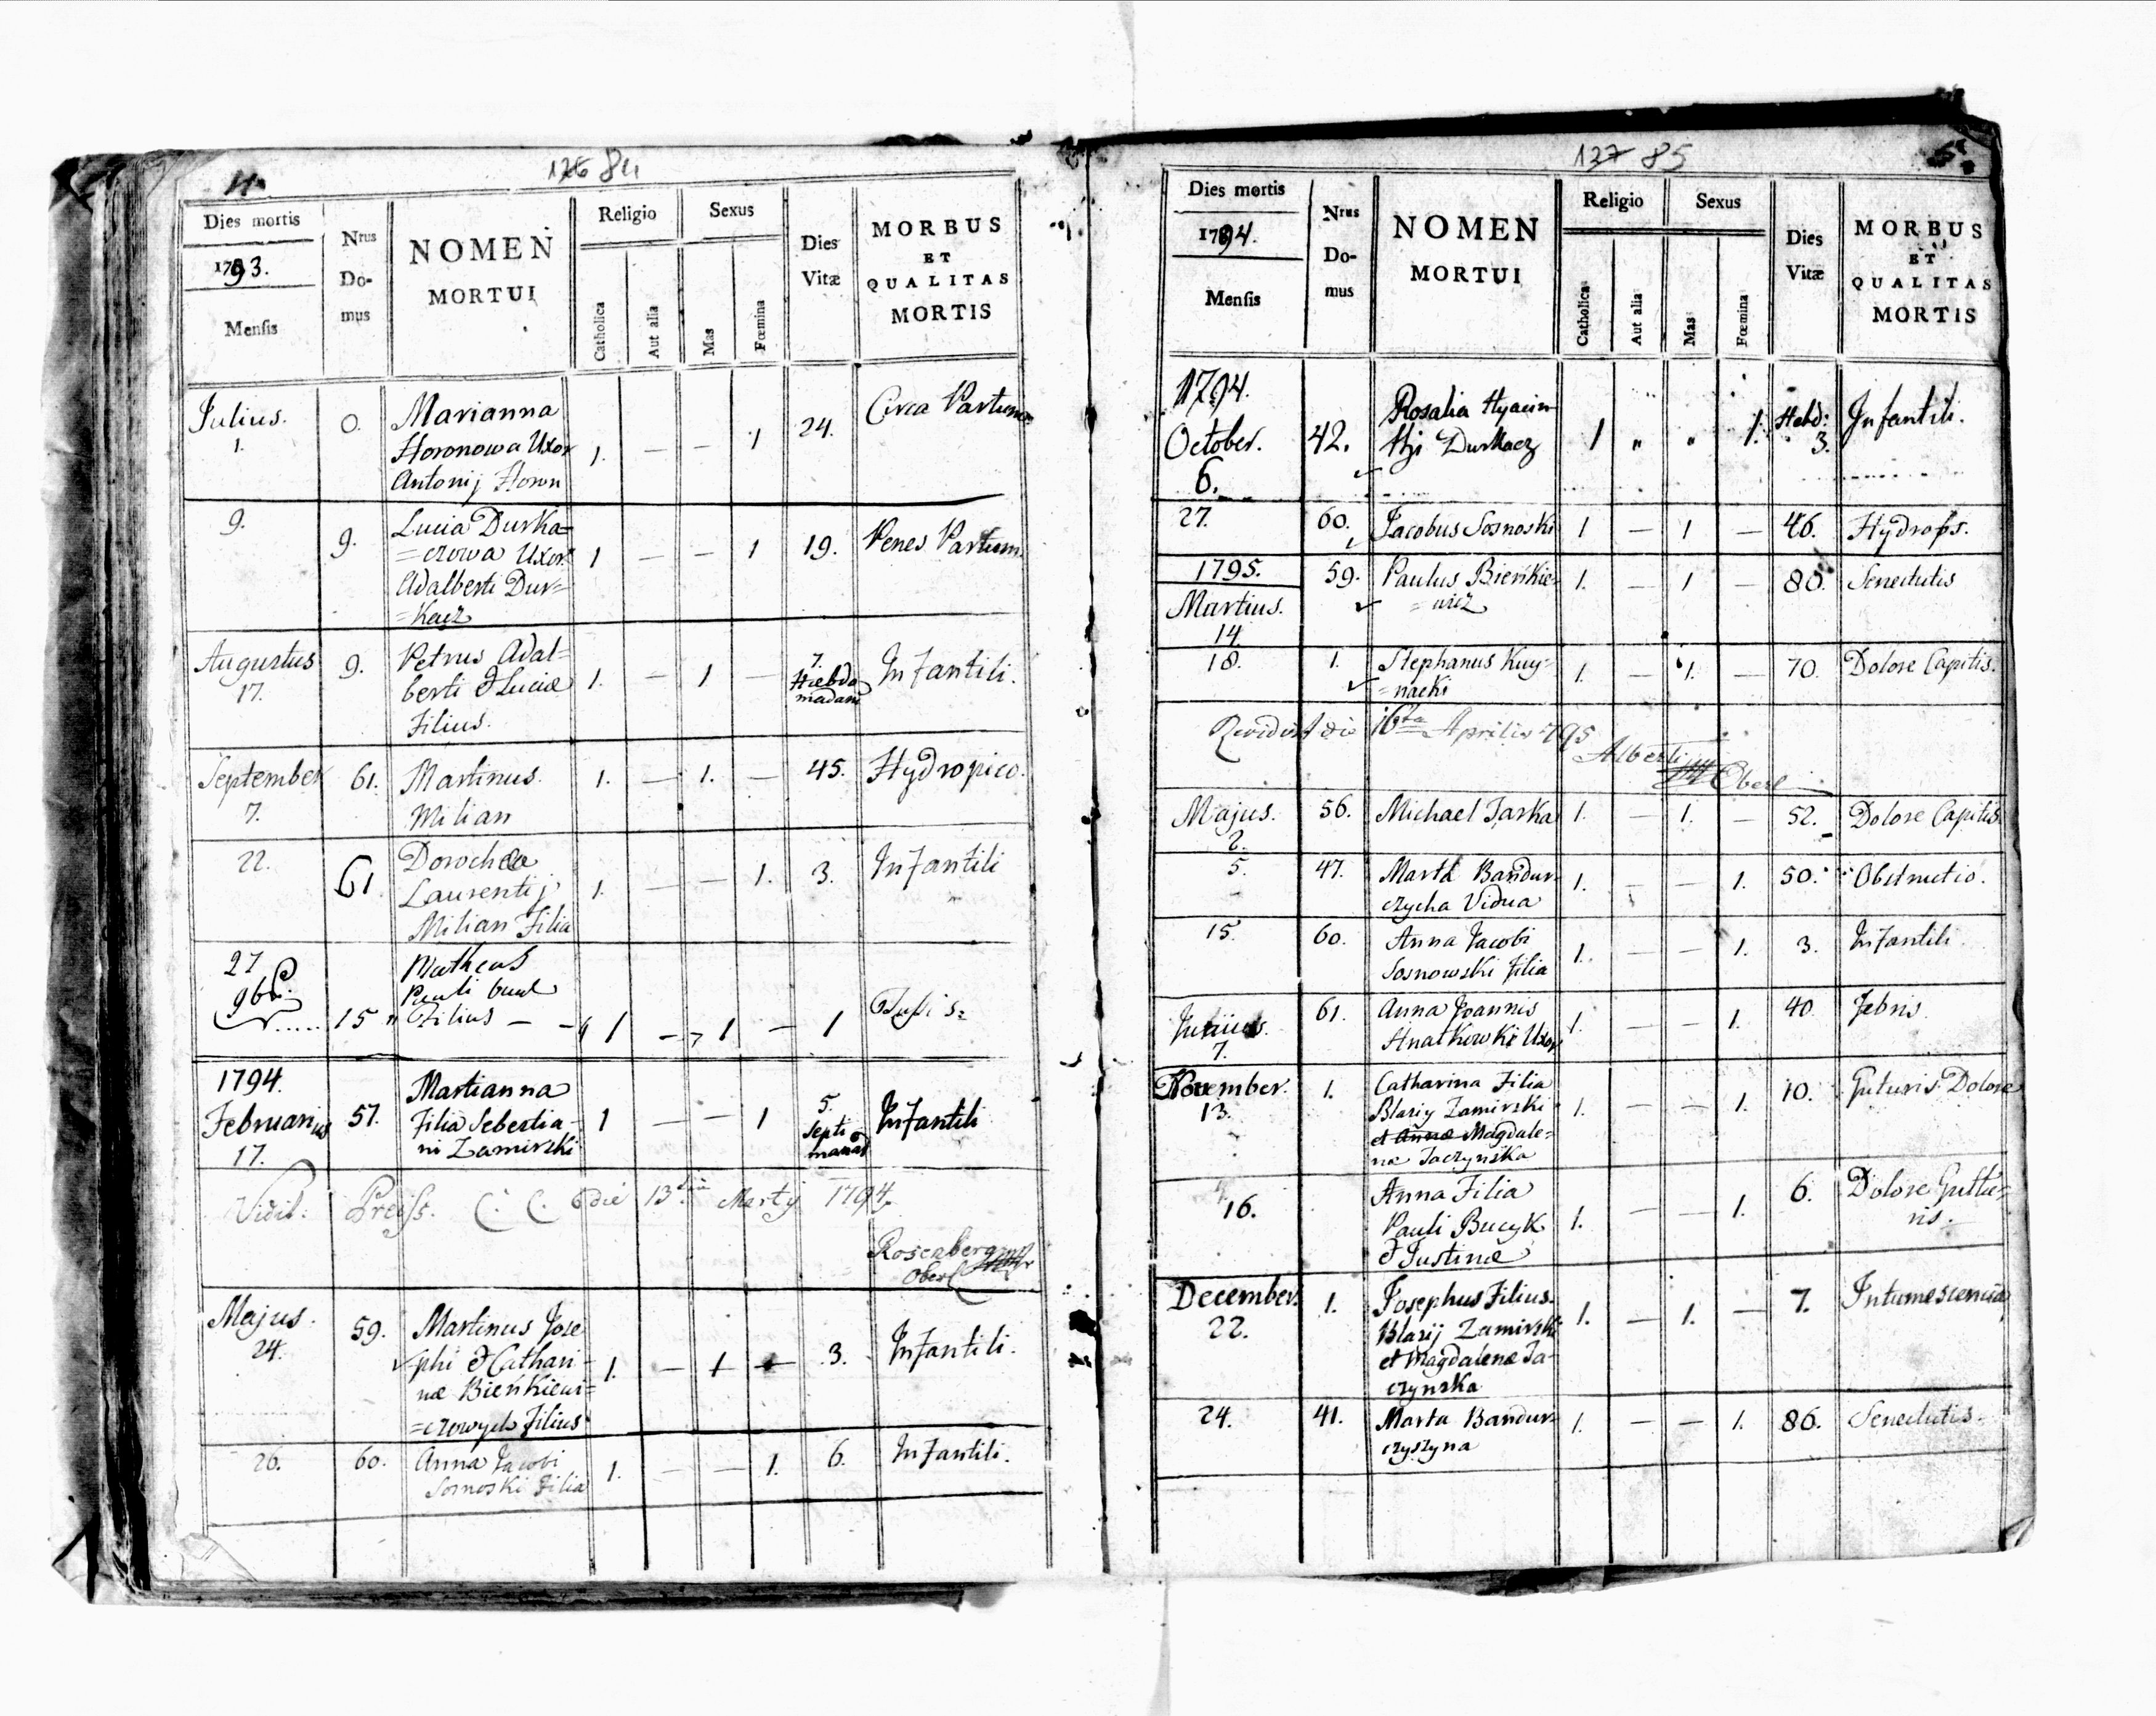 11.
126 84
Dies mortis
1793.
Mensis
Nrus
Do-
mus
NOMEN
MORTUI
Religio
Catholica
Aut alia
Sexus
Mas
Fœmina
Dies
Vitæ
MORBUS
ET
QUALITAS
MORTIS
Julius.
1.
0.
Marianna
Horonowa Uxor
Antonij Horon
1. — — 1
24.
Circa Partum
9.
9.
Lucia Durka=
=czowa Uxor
Adalberti Dur=
=kacz
1 — — 1
19.
Penes Partum
Augustus
17.
9.
Petrus Adal=
berti & Luciæ
Filius.
1. — 1 —
7.
Hebdo
madam
Infantili.
September
7.
61.
Martinus
Milian
1. — 1. —
45.
Hydropico.
22.
61
Dorothea
Laurentij
Milian Filia
1. — — 1.
3.
Infantili
27
9br.
15
Matheus
Pauli
Filius —
1 — 1 —
1
Tussis
1794.
Februarius
17.
57.
Martianna
Filia Sebestia-
ni Zamirski
1 — — 1
5.
Septi
manas
Infantili
Vidit: Preiss. C. C. die 13tia Martij 1794.
Rosenberg
Ober
Majus.
24.
59.
Martinus Jose
phi & Cathari-
næ Bieńkiewi=
=czowych Filius
1. — 1 —
3.
Infantili.
26.
60.
Anna Jacobi
Sosnoski Filia
1. — — 1.
6.
Infantili.
127 85
Dies mortis
1794.
Mensis
Nrus
Do-
mus
NOMEN
MORTUI
Religio
Catholica
Aut alia
Sexus
Mas
Fœmina
Dies
Vitæ
MORBUS
ET
QUALITAS
MORTIS
1794.
October.
6.
42.
Rosalia Hyacin
thj Durkacz
1 " " 1.
Hebd:
3.
Infantili.
27.
60.
Jacobus Sosnoski
1 — 1 —
46.
Hydrops.
1795.
Martius.
14.
59.
Paulus Bieńkie-
=wicz
1. — 1 —
80.
Senectutis
18.
1.
Stephanus Kuy=
=nacki
1. — 1. —
70.
Dolore Capitis.
Revidirt die 16ta Aprilis 795
Alberti
Oberl
Majus.
2.
56.
Michael Jarka
1. — 1. —
52.
Dolore Capitis
5.
47.
Marta Bandur
czycha Vidua
1. — — 1.
50.
Obstructio.
15.
60.
Anna Jacobi
Sosnowski Filia
1. — — 1.
3.
Infantili.
7.
61.
Anna Joannis
Hnatkowski Uxor
1. — — 1.
40
Febris.
November.
13.
1.
Catharina Filia
Blasij Zamirski
et Annæ Magdale=
næ Jaczynska
1. — — 1.
10.
Guturis Dolore
16.
Anna Filia
Pauli Bucyk
& Justinæ
1. — — 1.
6.
Dolore Guttu=
ris.
December.
22.
1.
Josephus Filius
Blasij Zamirski
et Magdalenæ Ja-
czynska
1. — 1. —
7.
Intumescentia
24.
41.
Marta Bandur
czyszyna
1. — — 1.
86.
Senectutis.